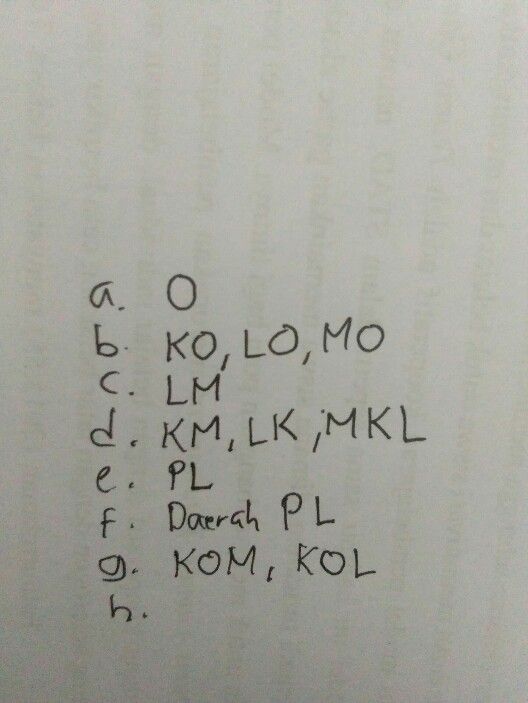 a. O
b. KO, LO, MO
c. LM
d. KM, LK, MKL
e. PL
f. Daerah PL
g. KOM, KOL
h.